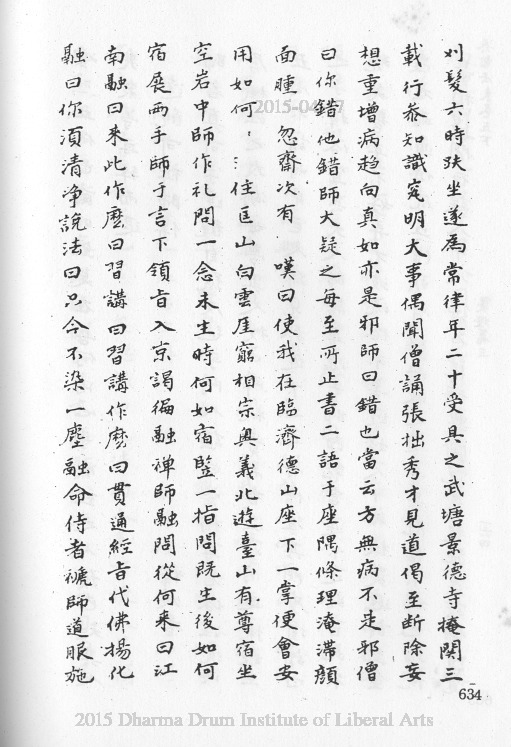 刈髮六時趺坐遂爲常律年二十受具之武塘景德寺掩関三
載行叅知識究明大事偶聞僧誦張拙秀才見道偈至断除妄
想重增病趋向真如亦是邪師曰錯也當云方無病不是邪僧
曰你錯他錯師大疑之每至所止書二語于座隅條理淹滯顔
面腫忽齋次有嘆曰使我在臨濟德山座下一掌便會安
用如何……住匡山白雲厓窮相宗奥義北遊臺山有尊宿坐
空岩中師作礼問一念未生時何如宿竪一指問既生後如何
宿展两手師于言下領旨入京謁徧融禅師融問從何來曰江
南融曰来此作麽曰習講曰習講作麽曰貫通經旨代佛揚化
融曰你須清净說法曰只今不染一塵融命侍者褫師道服施
634
2015 Dharma Drum Institute of Liberal Arts